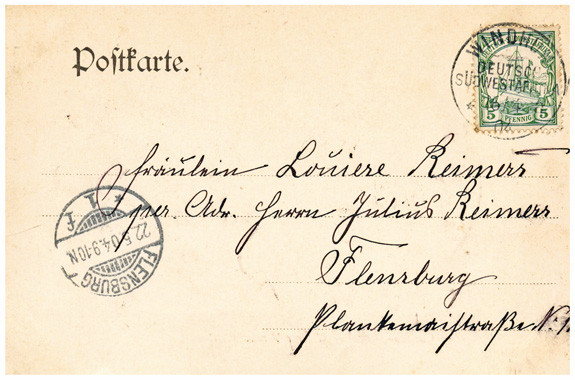 Postkarte.
WINDHUK
DEUTSCH
SÜDWESTAFR
5 PFENNIG 5
Fräulein Louise Reimers
per. Adr. Herrn Julius Reimers
Flensburg
Plankemaistraße N:
* 1 f
22.5.04.9-10N.
FLENSBURG